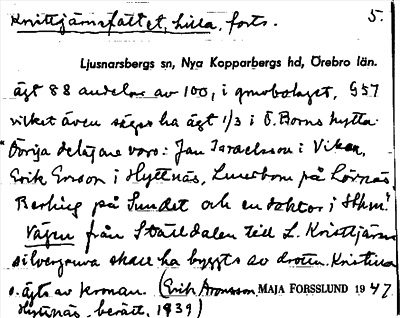 Kristtjärnsfältet, lilla. forts. 5.
Ljusnarsbergs sn, Nya Kopparbergs hd, Örebro län.
ägt 88 andelar av 100, i gruvbolaget, G57
vilket även säges ha ägt 1/3 i Ö. Borns hytta.
"Övriga delägare voro: Jan Israelsson i Viken,
Erik Ersson i Hyttnäs, Lunerbom på Lövnäs,
Berling på Sundet och en doktor i Sthm."
Vägen från Ställdalen till L. Kristtjärns
silvergruva skall ha byggts av drottn. Kristina
o. ägts av kronan. (Erik Aronsson, MAJA FORSSLUND 1947.
Hyttnäs, berätt. 1939)